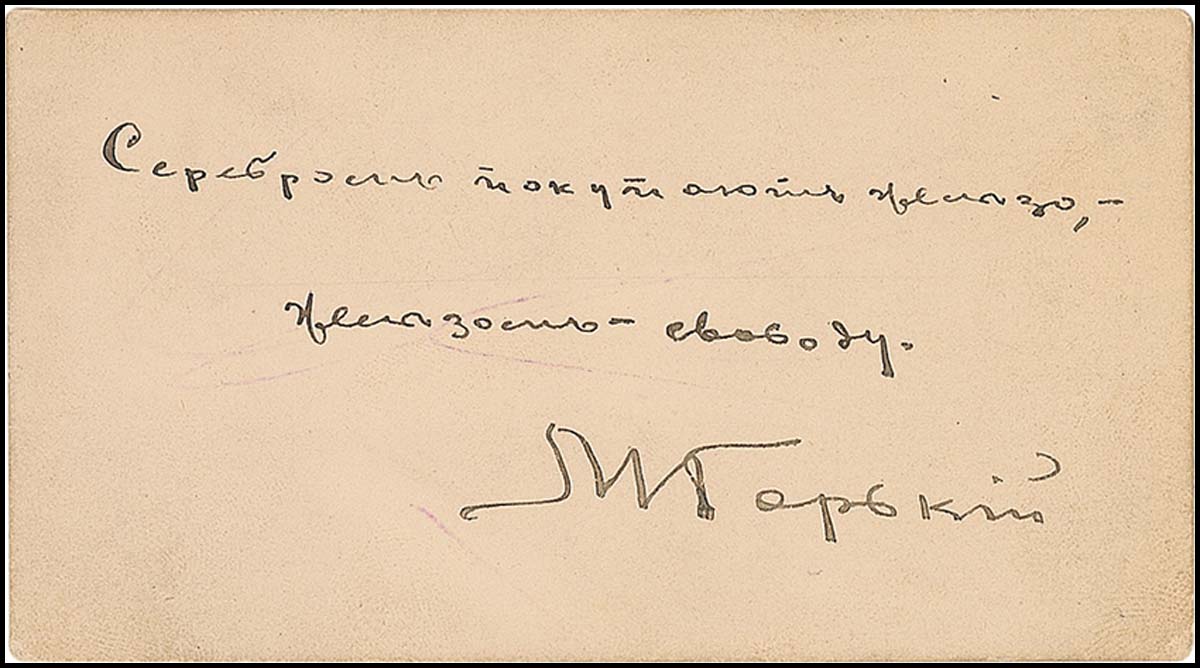 Серебромъ покупаютъ желѣзо,-
желѣзомъ - свободу.
М Горькій